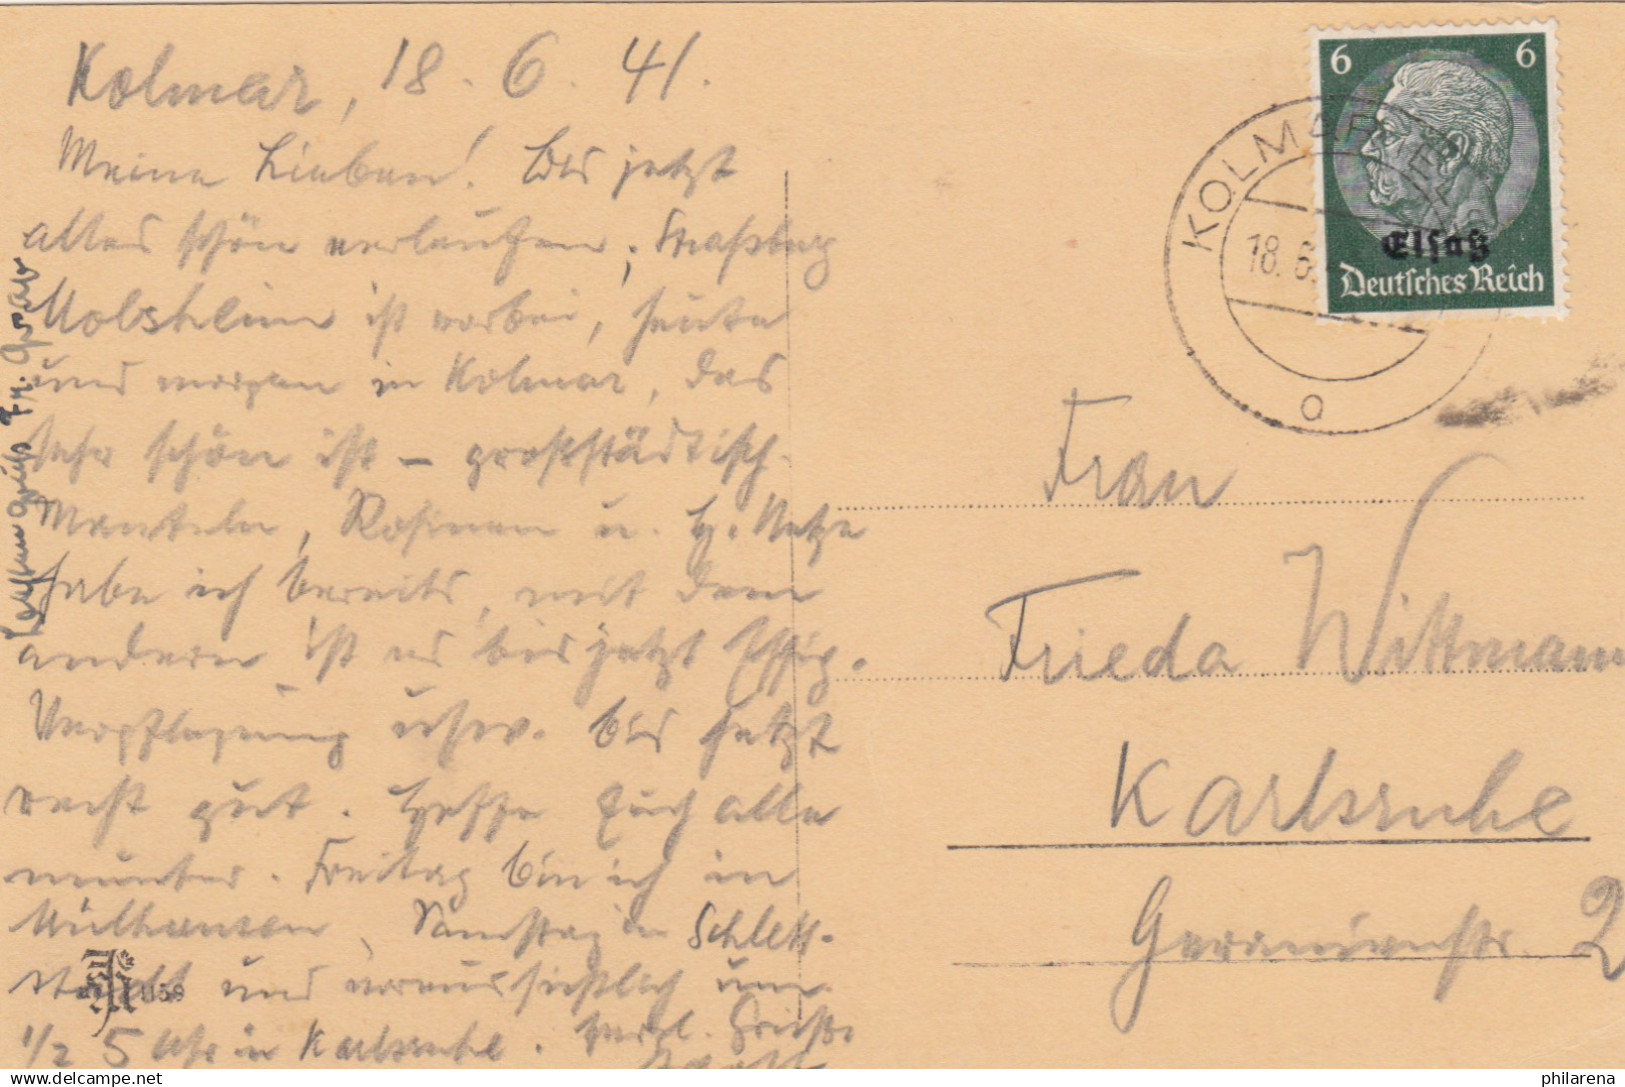 Kolmar, 18. 6. 41.
Meine Lieben! Bis jetzt
alles schön verlaufen; Straßburg
Molsheim ist vorbei, heute
und morgen in Kolmar, das
sehr schön ist – großstädtisch.
Manteln, Rosinen u.
habe ich bereits, mit dem
andern ist es bis jetzt Essig.
Verpflegung usw. bis jetzt
recht gut. Hoffe Euch alle
munter. Freitag bin ich in
Mülhausen, Samstag in Schlett-
stadt und voraussichtlich um
1/2 5 Uhr in Karlsruhe. Herzl. Grüße
Gruß Fr.
1159
6 6
Elsaß
Deutsches Reich
KOLMAR (ELS)
18. 6.
a
Frau
Frieda Wittmann
Karlsruhe
Geranienstr. 2
philarena